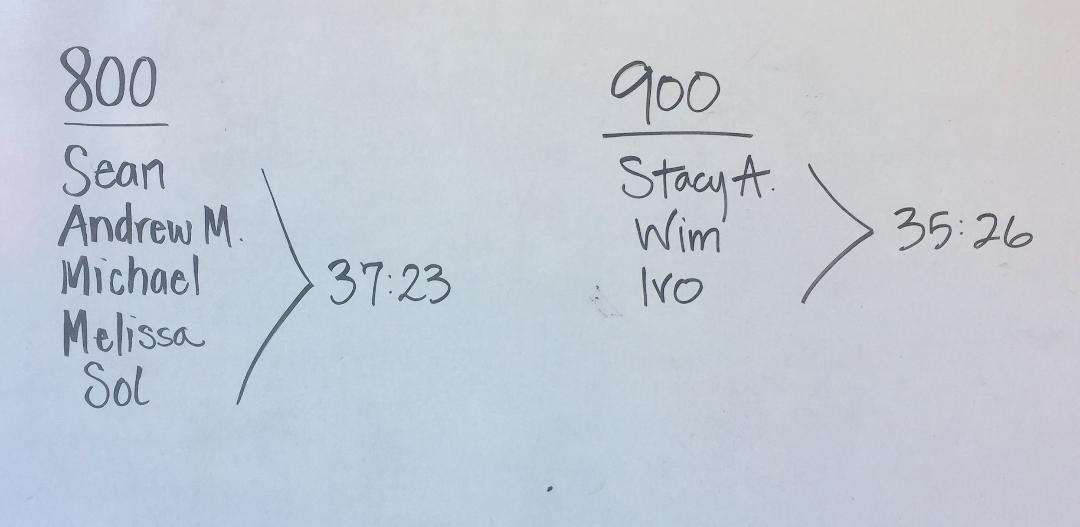 800
Sean
Andrew M.
Michael
Melissa
Sol
37:23
900
Stacy A.
Wim
Ivo
35:26